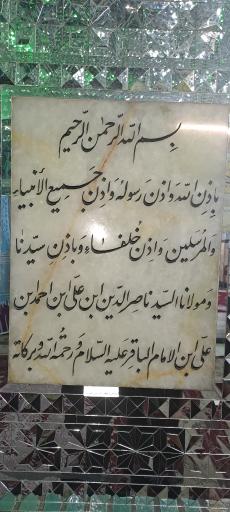 بسم الله الرحمن الرحیم
باذن الله و اذن رسوله و اذن جمیع الأنبیاء
والمرسلین و اذن خلفاءه و باذن سیدنا
و مولانا السید ناصر الدین ابن علی ابن احمد ابن
علی ابن الامام الباقر علیه السلام و رحمة الله و برکاته